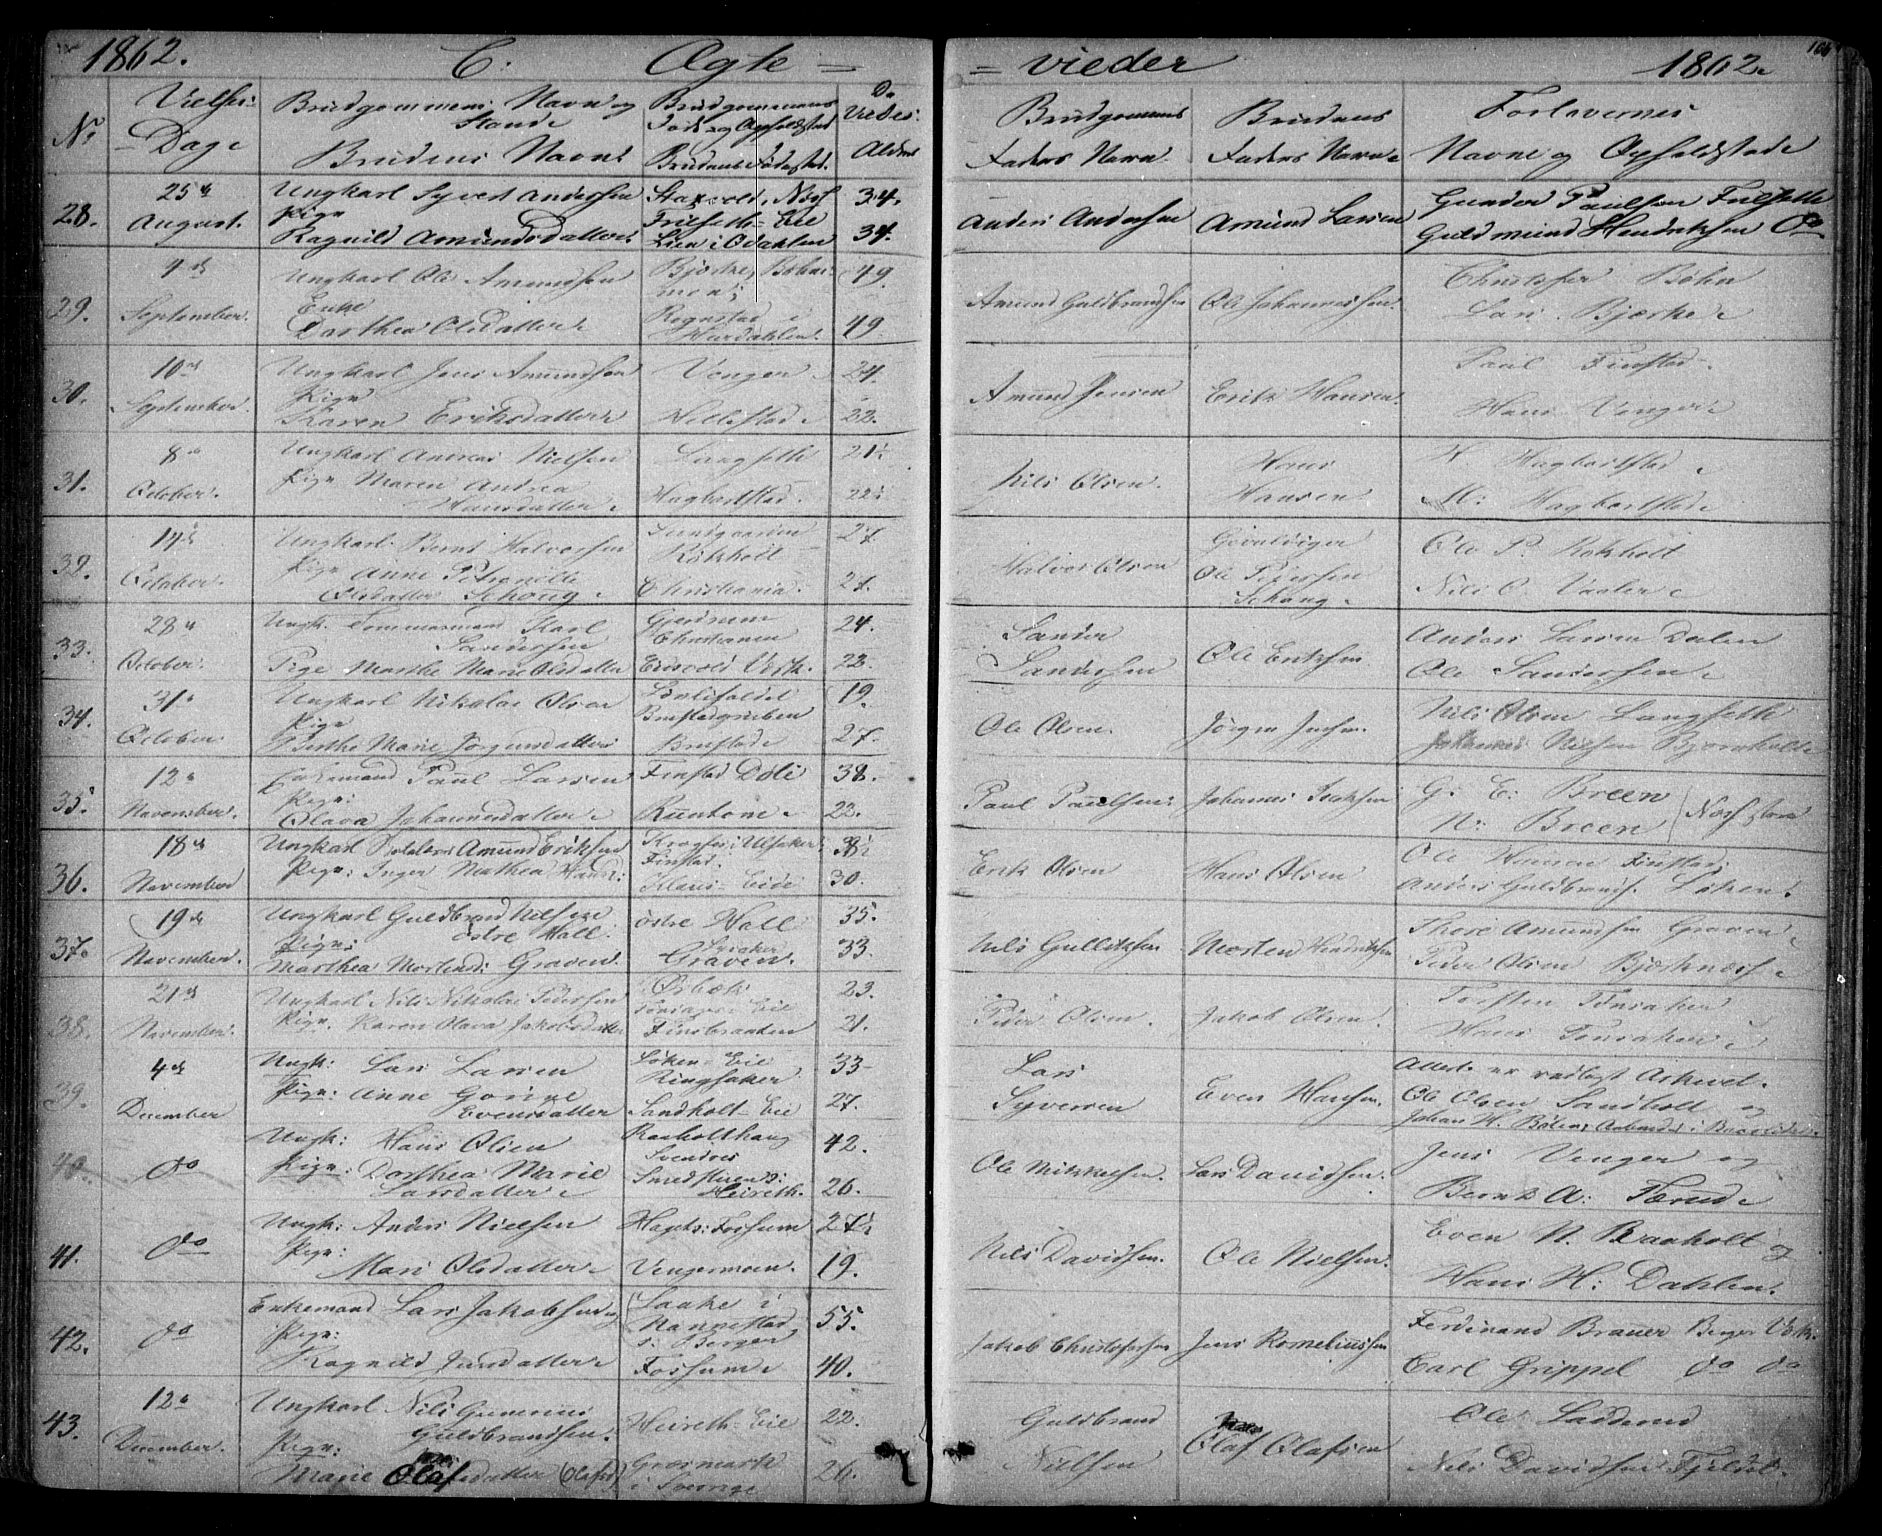 1862. C: Ægte =
= vieder 1862.
No Vielses: Dage
Brudgommens Navn og Stand
Brudens Navn
Brudgommens Føde og Opholdsted
Brudens Fødested
De Viedes Alder
Brudgommens Faders Navn
Brudens Faders Navn
Forlovernes Navne og Opholdstede
28. 25 August.
Ungkarl Syver Andersen
Pige
Ragnild Amundsdatter
34.
34.
Anders Andersen
Amund Larsen
Gunder Paulsen
Guldmund Hendriksen Do
29. September.
Ungkarl Ole Amundsen
Enke
Dorthea Olsdatter
Bjerke,
Rognstad i
Hurdahlen.
49.
49.
Amund Guldbrandsen
Ole Johannessen
Christofer Bøhn
Lars Bjerke
30. 10 September.
Ungkarl Jens Amundsen
Pige
Karen Eriksdatter
Venger
Nillestad
24.
22.
Amund Jensen
Erik Hansen
Paul Finstad
Hans Venger
31. 8 October.
Ungkarl Andreas Nielsen
Pige Maren Andrea
Hansdatter
Langseth
Hagbartstad.
21
22
Nils Olsen.
Hans
Hansen
H Hagbartstad
M: Hagbartstad
32. October.
Ungkarl Bernt Halvorsen
Pige Anne Petronille
Olsdatter Schong
Rokholt
Christiania.
27
27.
Halvor Olsen
Ole Pedersen
Schong
Ole P. Rokholt
Nils O. Vaaler
33. 28 October.
Ungk. Tommermand Karl
Sandersen
Pige Marthe Marie Olsdatter
Gjerdrum
Eidsvold Værk.
24.
22.
Sander
Sandersen
Ole Eriksen
Anders Larsen Dalen
Ole Sandersen
34. 31 October.
Ungkarl Nikolai Olsen
Pige
Berthe Marie Jørgensdatter
Brustadgruben
Brustad
19.
27.
Ole Olsen.
Jørgen Jensen
Nils Olsen Langseth
Johannes Nielsen Bjørnholdt
35. 12 November.
Enkemand Paul Larsen
Pige:
Olava Johannesdatter
Finstad Dæli
Runton
38.
22.
Paul Paulsen
Johannes
G. E: Breen
N: Breen
36. 18 November
Ungkarl Soldat Amund Eriksen
Pige: Inger Mathea Hansd:
i Ulsaker
Finstad.
Eie
38
30.
Erik Olsen
Hans Olsen
Ole Hansen Finstad
Anders Guldbrands. Løken.
37. 19 November.
Ungkarl Guldbrand Nilsen
østre Hall:
Pige:
Marthea Mortensd: Graven
østre Hall
Graven.
35.
33.
Nils Gulliksen
Morten Hendriksen
Thore Amundsen Graven
Peder Olsen Bjerknæs
38. 21 November.
Ungkarl Nils Nikolai Pedersen
Pige. Karen Olava Jakobsdatter
Ørbæk
Finsbraaten
23.
21.
Peder Olsen.
Jakob Olsen.
Torsten Tonsaker
Hans Tonsaker
39. 4 December
Ungk: Lars Larsen
Pige: Anne
Evensdatter
Løken Eie
Ringsaker
Sandholt Eie
33
27.
Lars
Syversen
Even Hansen.
Attest er vedlagt Arkivet.
Ole Olsen Sandholt og
Johan H. Bølen,
40. Do
Ungk: Hans Olsen
Pige: Dorthea Marie
Larsdatter
Raaholthaug
42.
26.
Ole Mikkelsen.
Lars Davidsen.
Jens Venger og
Bernt A: Tærud
41. Do
Ungk: Anders Nielsen
Pige:
Mari Olsdatter
Fossum
Vengermoen.
27
19.
Nils Davidsen.
Ole Nielsen.
Even N. Raaholt og
Hans H: Dahlen.
42. Do
Enkemand Lars Jakobsen
Pige:
Ragnild Jensdatter
i
Nannestad
Berger
Fossum
55.
40.
Jakob Christophersen
Jens Kornelius­sen
Ferdinand Brauer Berger
Carl Grippel Do Do
43. 12 December.
Ungkarl Nils Gunerius
Guldbrandsen.
Pige:
Marie Olafsdatter (Olafsd)
Heireth Eie
Græsmark
i Sverige
22.
26.
Guldbrand
Nielsen
Olaf Olafsen
Ole Ladderud
Nils Davidsen